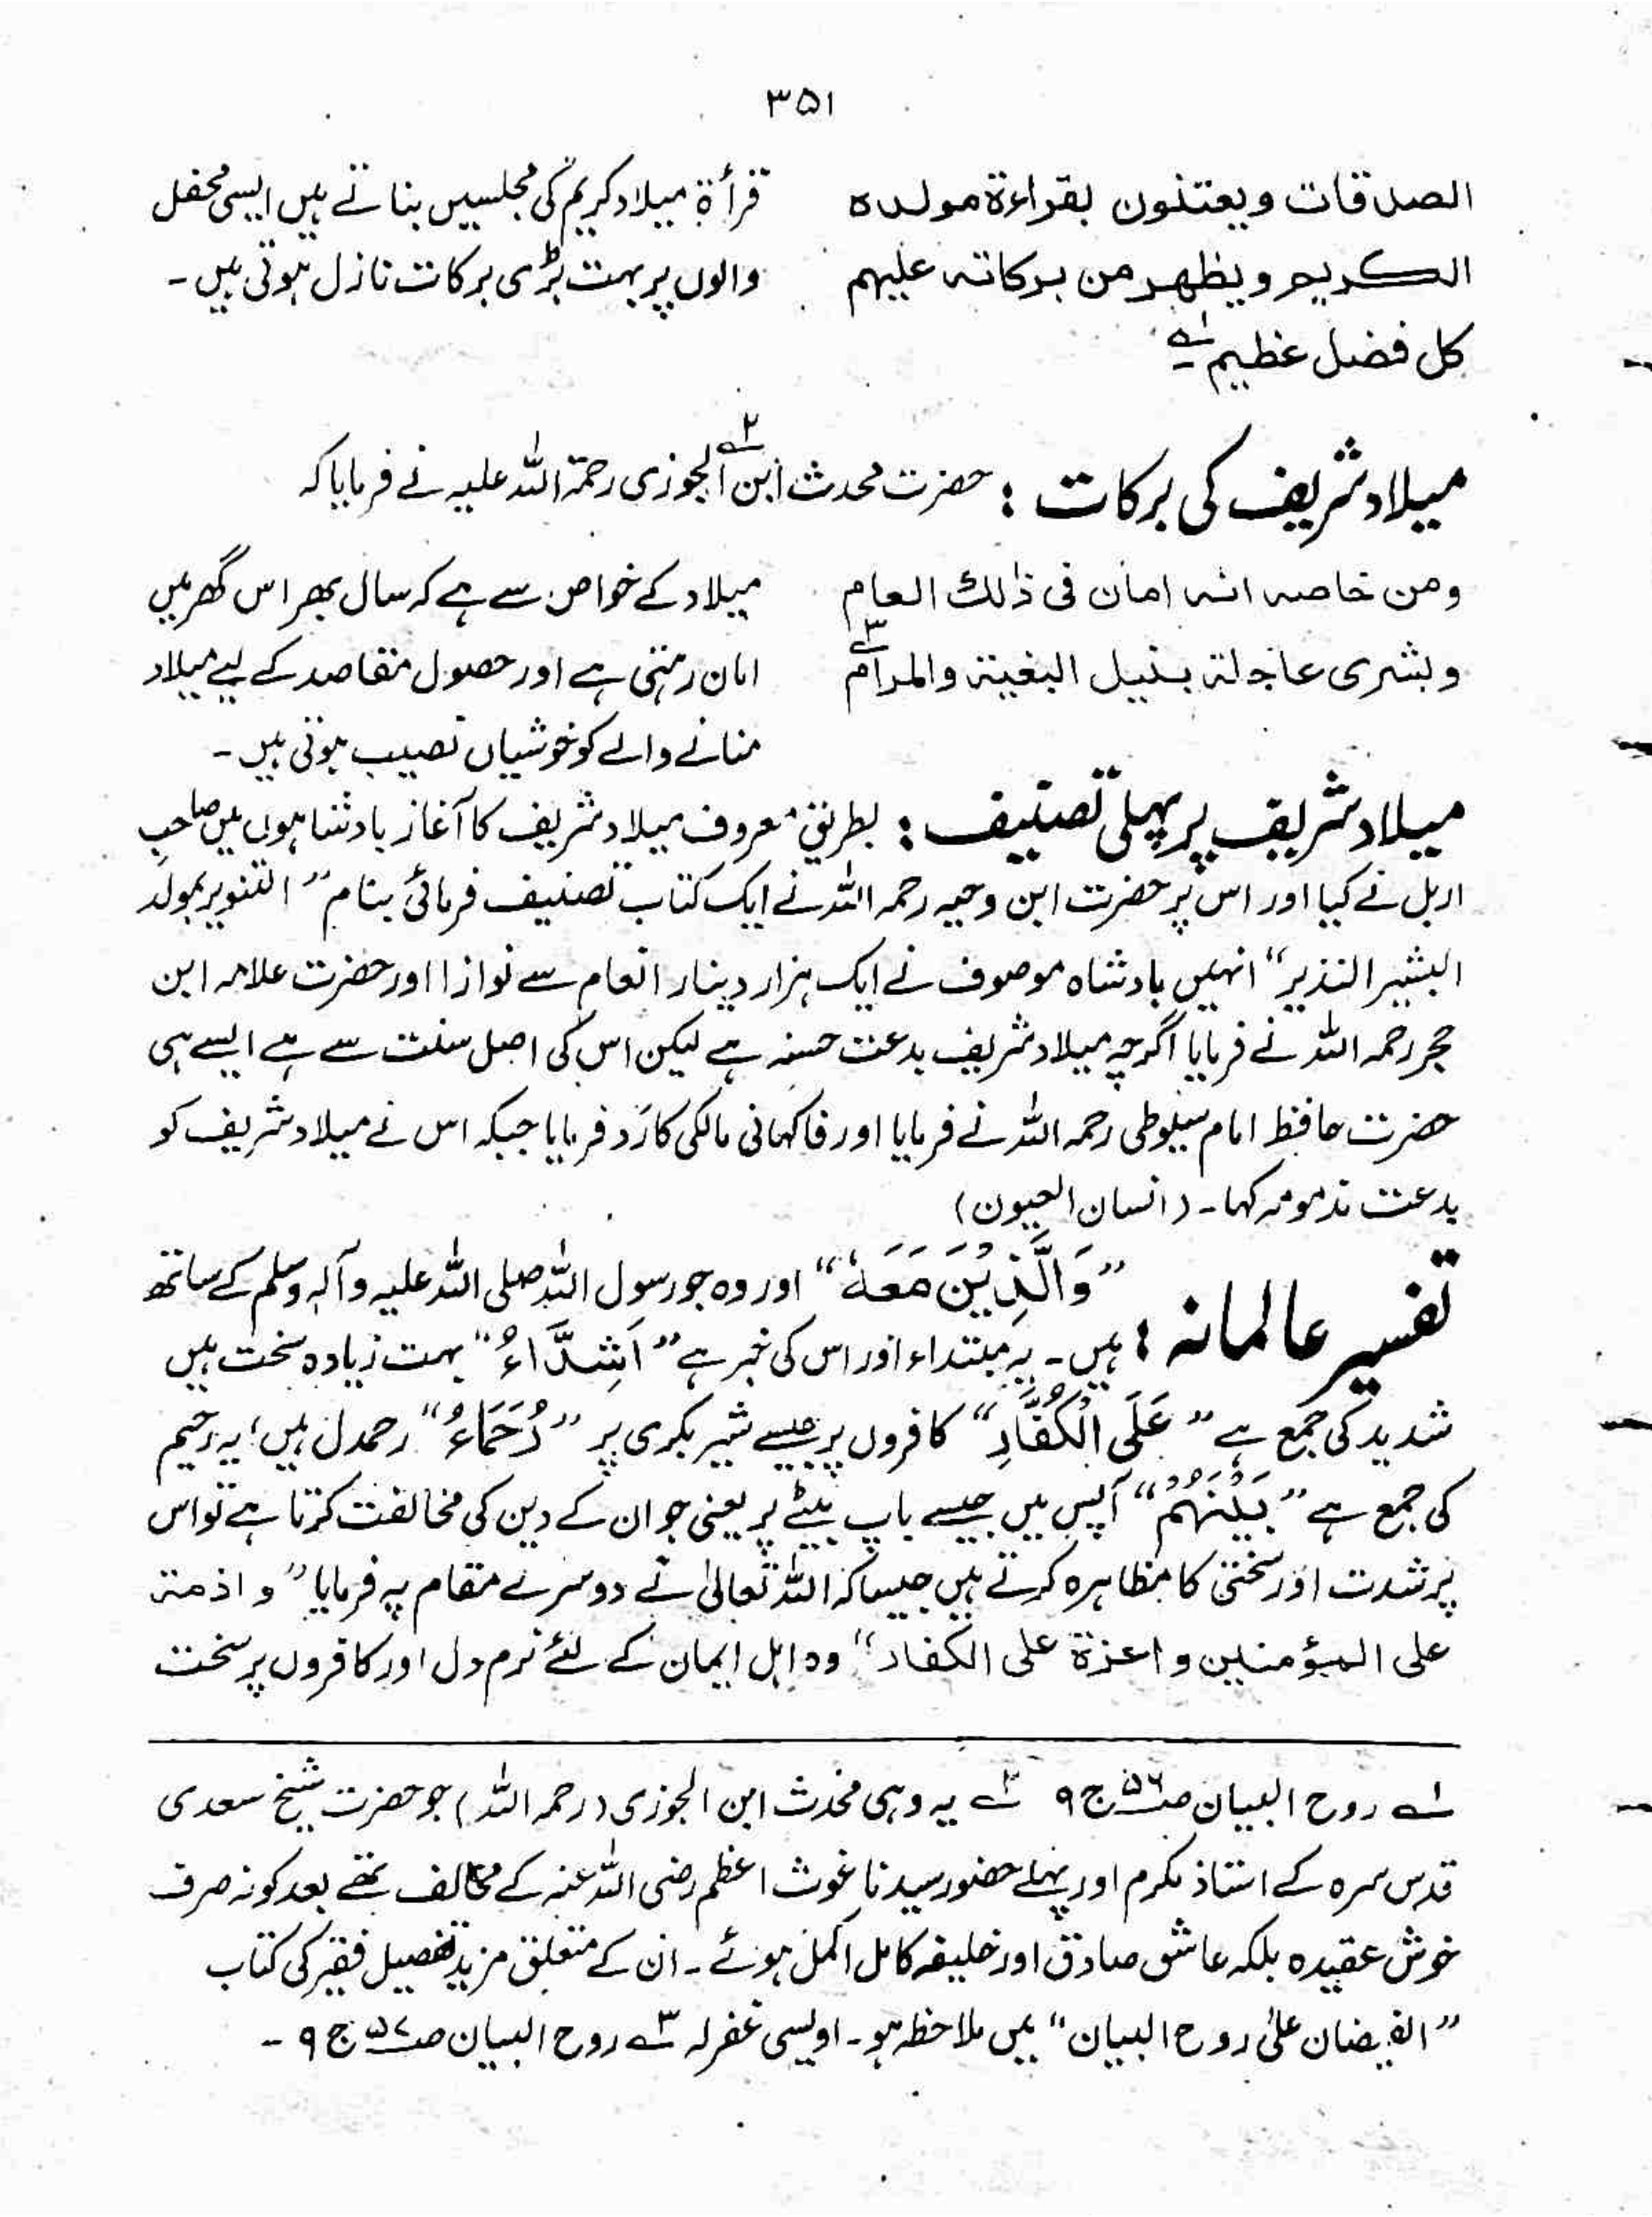 ۳۵۱
الصدقات ويعتنون بقراءة مولده
الكريم ويظهر من بركاته عليهم
كل فضل عظيم ۱ے
قرأۃ میلاد کریم کی مجلسیں بناتے ہیں ایسی محفل
والوں پر بہت بڑی برکات نازل ہوتی ہیں۔
میلاد شریف کی برکات : حضرت محدث ابن الجوزی ۲ے رحمۃ اللہ علیہ نے فرمایا کہ
ومن خاصه انه امان فى ذالك العام
وبشرى عاجلة بنيل البغية والمرام ۳ے
میلاد کے خواص سے ہے کہ سال بھر اس گھر میں
امان رہتی ہے اور حصول مقاصد کے لیے میلاد
منانے والے کو خوشیاں نصیب ہوتی ہیں۔
میلاد شریف پر پہلی تصنیف : بطریق معروف میلاد شریف کا آغاز بادشاہوں میں صاحب
اربل نے کیا اور اس پر حضرت ابن وحیہ رحمہ اللہ نے ایک کتاب تصنیف فرمائی بنام "التنویر بمولد
البشیر النذیر" انہیں بادشاہ موصوف نے ایک ہزار دینار انعام سے نوازا اور حضرت علامہ ابن
حجر رحمہ اللہ نے فرمایا اگرچہ میلاد شریف بدعت حسنہ ہے لیکن اس کی اصل سنت سے ہے ایسے ہی
حضرت حافظ امام سیلوطی رحمہ اللہ نے فرمایا اور فاکہانی مالکی کا رَد فرمایا جبکہ اس نے میلاد شریف کو
بدعت مذمومہ کہا۔ (انسان العیون)
تفسیر عالمانہ : "وَالَّذِيْنَ مَعَهٗ" اور وہ جو رسول اللہ صلی اللہ علیہ وآلہ وسلم کے ساتھ
ہیں۔ یہ مبتداء اور اس کی خبر ہے "اَشِدَّاءُ" بہت زیادہ سخت ہیں
شدید کی جمع ہے "عَلَى الْكُفَّارِ" کافروں پر جیسے شیر بکری پر "رُحَمَاءُ" رحمدل ہیں؛ یہ رحیم
کی جمع ہے "بَيْنَهُمْ" آپس میں جیسے باپ بیٹے پر یعنی جو ان کے دین کی مخالفت کرتا ہے تو اس
پر شدت اور سختی کا مظاہرہ کرتے ہیں جیسا کہ اللہ تعالیٰ نے دوسرے مقام پہ فرمایا "و اذمة
على المؤمنين و اعزة على الكفار" وہ اہل ایمان کے لئے نرم دل اور کافروں پر سخت
۱ے روح البیان صـ۵۶ ج ۹ ۲ے یہ وہی محدث ابن الجوزی (رحمہ اللہ) جو حضرت شیخ سعدی
قدس سرہ کے استاذ مکرم اور پہلے حضور سیدنا غوث اعظم رضی اللہ عنہ کے مخالف تھے بعد کو نہ صرف
خوش عقیدہ بلکہ عاشق صادق اور خلیفہ کامل اکمل ہوئے۔ ان کے متعلق مزید تفصیل فقیر کی کتاب
"الفیضان علیٰ روح البیان" میں ملاحظہ ہو۔ اویسی غفرلہ ۳ے روح البیان صـ۵۷ ج ۹ ۔